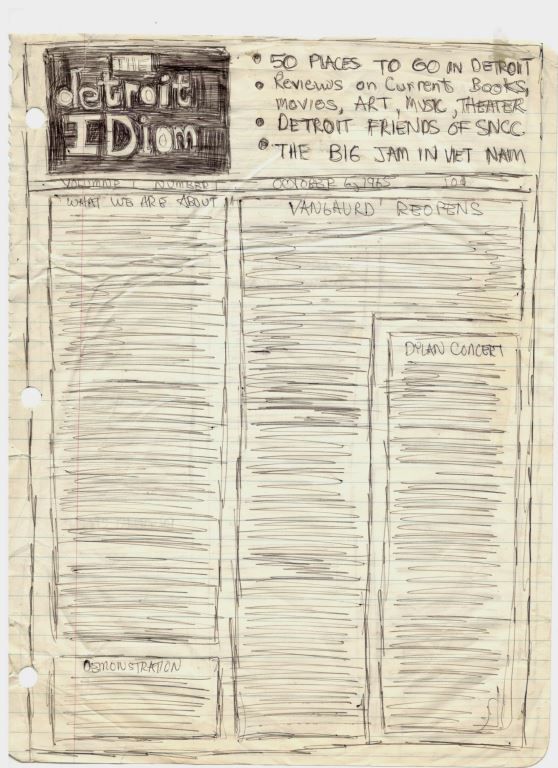 THE
detroit
IDiom
• 50 PLACES TO GO IN DETROIT
• Reviews on Current Books,
MOVIES, ART, MUSIC, THEATER
• DETROIT FRIENDS OF SNCC
• THE BIG JAM IN VIET NAM
VOLUMNE 1 NUMBER 1 OCTOBER 6, 1965 10¢
WHAT WE ARE ABOUT
VANGAURD REOPENS
DYLAN CONCERT
DEMONSTRATION